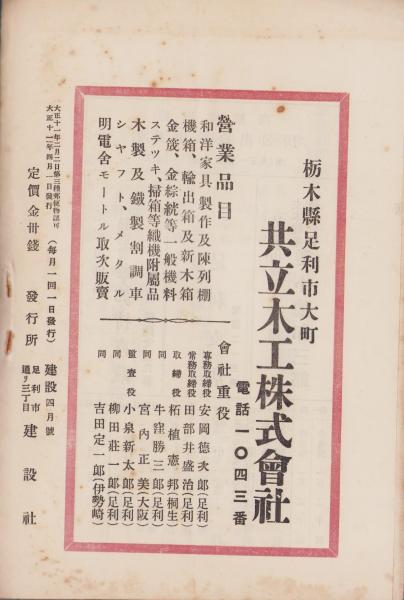 栃木縣足利市大町
共立木工株式會社
電話一〇四三番
營業品目
和洋家具製作及陳列棚
機箱、輸出箱及新木箱
金筬、金綜絖等一般機料
ステツキ、掃箱等織機附屬品
木製及鐵製割調車
シヤフト、メタル
明電舍モートル取次販賣
會社重役
專務取締役 安岡德次郎(足利)
常務取締役 田部井盛治(足利)
取締役 柘植憲邦(桐生)
同 牛窪勝三郎(足利)
同 宮內正美(大阪)
監査役 小泉新太郎(足利)
同 柳田莊一郎(足利)
同 吉田定一郎(伊勢崎)
建設四月號
大正十一年二月二日第三種郵便物認可
大正十二年四月一日發行
(每月一回一日發行)
定價金卅錢
發行所 足利市通リ三丁目 建設社